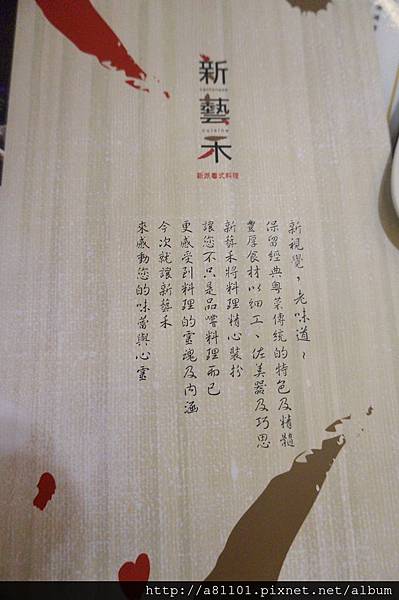 新
cantonese
藝
cuisine
禾
新派粵式料理
新視覺，老味道，
保留經典粵菜傳統的特色及精髓
豐厚食材以細工、佐美器及巧思
新藝禾將料理精心裝扮
讓您不只是品嚐料理而已
更感受到料理的靈魂及內涵
今次就讓新藝禾
來感動您的味蕾與心靈
http://a81101.pixnet.net/album